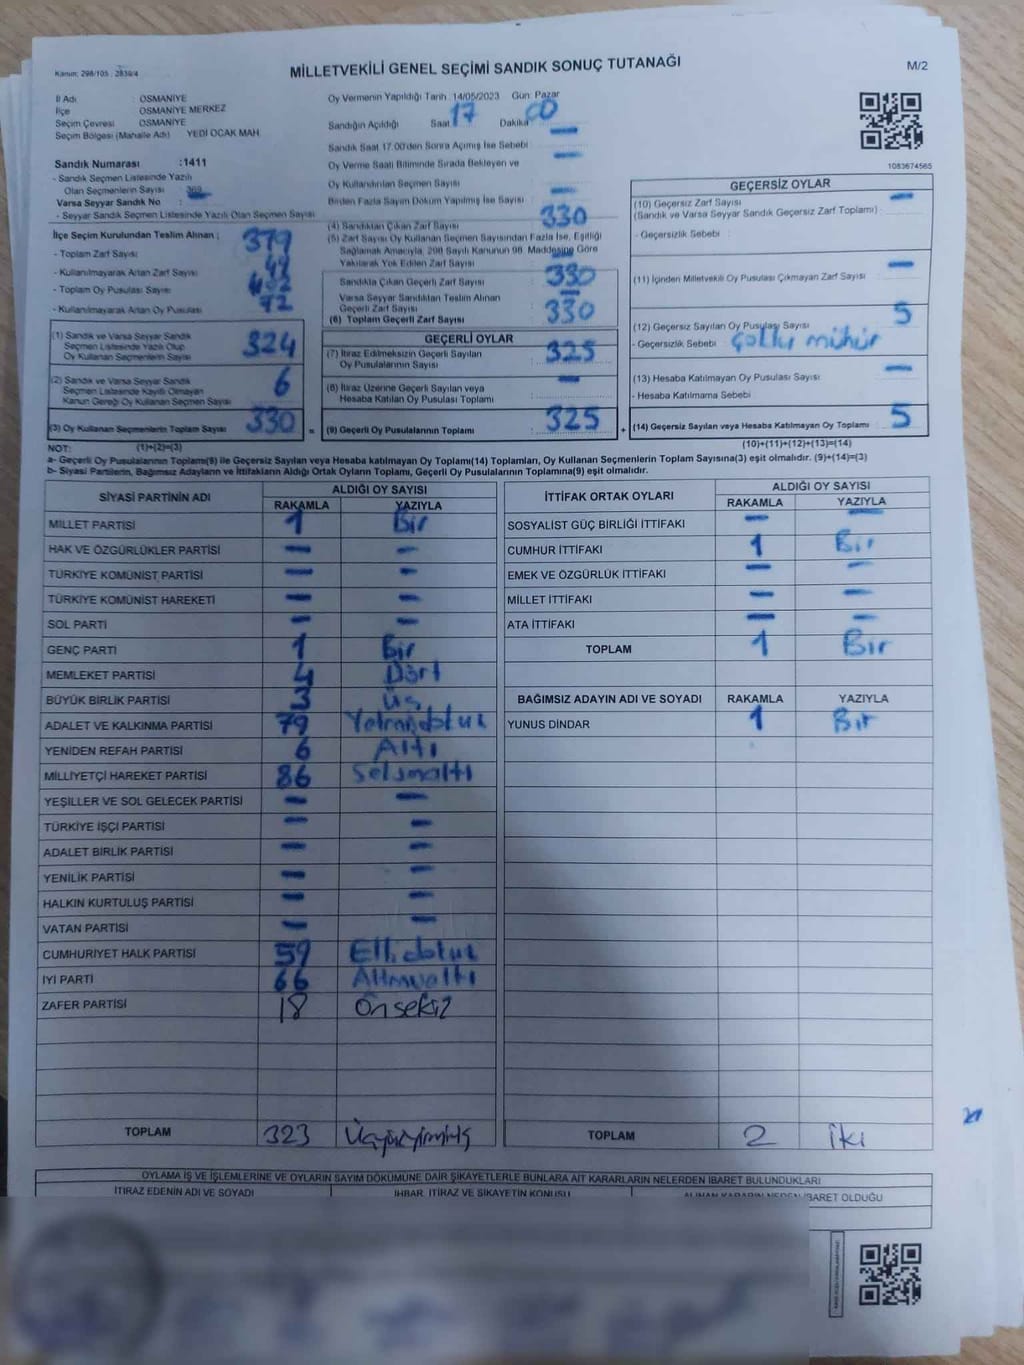 Kanun: 298/105 : 2839/4
MİLLETVEKİLİ GENEL SEÇİMİ SANDIK SONUÇ TUTANAĞI
M/2
İl Adı : OSMANİYE
İlçe : OSMANİYE MERKEZ
Seçim Çevresi : OSMANİYE
Seçim Bölgesi (Mahalle Adı) YEDİ OCAK MAH.
Sandık Numarası :1411
- Sandık Seçmen Listesinde Yazılı
Olan Seçmenlerin Sayısı : 369
Varsa Seyyar Sandık No :
- Seyyar Sandık Seçmen Listesinde Yazılı Olan Seçmen Sayısı
Oy Vermenin Yapıldığı Tarih :14/05/2023 Gün: Pazar
Sandığın Açıldığı Saat 17 Dakika 00
Sandık Saat 17.00'den Sonra Açılmış İse Sebebi : —
Oy Verme Saati Bitiminde Sırada Bekleyen ve —
Oy Kullandırılan Seçmen Sayısı
Birden Fazla Sayım Döküm Yapılmış İse Sayısı : —
1083674565
İlçe Seçim Kurulundan Teslim Alınan :
- Toplam Zarf Sayısı 379
- Kullanılmayarak Artan Zarf Sayısı 49
- Toplam Oy Pusulası Sayısı 402
- Kullanılmayarak Artan Oy Pusulası 72
(1) Sandık ve Varsa Seyyar Sandık
Seçmen Listesinde Yazılı Olup
Oy Kullanan Seçmenlerin Sayısı 324
(2) Sandık ve Varsa Seyyar Sandık
Seçmen Listesinde Kayıtlı Olmayan
Kanun Gereği Oy Kullanan Seçmen Sayısı 6
(3) Oy Kullanan Seçmenlerin Toplam Sayısı 330 =
(4) Sandıktan Çıkan Zarf Sayısı 330
(5) Zarf Sayısı Oy Kullanan Seçmen Sayısından Fazla İse, Eşitliği
Sağlamak Amacıyla, 298 Sayılı Kanunun 98. Maddesine Göre
Yakılarak Yok Edilen Zarf Sayısı —
Sandıkta Çıkan Geçerli Zarf Sayısı 330
Varsa Seyyar Sandıktan Teslim Alınan —
Geçerli Zarf Sayısı
(6) Toplam Geçerli Zarf Sayısı 330
GEÇERLİ OYLAR
(7) İtiraz Edilmeksizin Geçerli Sayılan
Oy Pusulalarının Sayısı 325
(8) İtiraz Üzerine Geçerli Sayılan veya
Hesaba Katılan Oy Pusulası Toplamı —
(9) Geçerli Oy Pusulalarının Toplamı 325 +
GEÇERSİZ OYLAR
(10) Geçersiz Zarf Sayısı —
(Sandık ve Varsa Seyyar Sandık Geçersiz Zarf Toplamı) :
- Geçersizlik Sebebi :
(11) İçinden Milletvekili Oy Pusulası Çıkmayan Zarf Sayısı —
(12) Geçersiz Sayılan Oy Pusulası Sayısı 5
- Geçersizlik Sebebi : Çoklu mühür
(13) Hesaba Katılmayan Oy Pusulası Sayısı —
- Hesaba Katılmama Sebebi
(14) Geçersiz Sayılan veya Hesaba Katılmayan Oy Toplamı 5
NOT: (1)+(2)=(3) (10)+(11)+(12)+(13)=(14)
a- Geçerli Oy Pusulalarının Toplamı(9) ile Geçersiz Sayılan veya Hesaba katılmayan Oy Toplamı(14) Toplamları, Oy Kullanan Seçmenlerin Toplam Sayısına(3) eşit olmalıdır. (9)+(14)=(3)
b- Siyasi Partilerin, Bağımsız Adayların ve İttifakların Aldığı Ortak Oyların Toplamı, Geçerli Oy Pusulalarının Toplamına(9) eşit olmalıdır.
SİYASİ PARTİNİN ADI ALDIĞI OY SAYISI
RAKAMLA YAZIYLA
MİLLET PARTİSİ 1 Bir
HAK VE ÖZGÜRLÜKLER PARTİSİ — —
TÜRKİYE KOMÜNİST PARTİSİ — —
TÜRKİYE KOMÜNİST HAREKETİ — —
SOL PARTİ — —
GENÇ PARTİ 1 Bir
MEMLEKET PARTİSİ 4 Dört
BÜYÜK BİRLİK PARTİSİ 3 Üç
ADALET VE KALKINMA PARTİSİ 79
YENİDEN REFAH PARTİSİ 6 Altı
MİLLİYETÇİ HAREKET PARTİSİ 86
YEŞİLLER VE SOL GELECEK PARTİSİ — —
TÜRKİYE İŞÇİ PARTİSİ — —
ADALET BİRLİK PARTİSİ — —
YENİLİK PARTİSİ — —
HALKIN KURTULUŞ PARTİSİ — —
VATAN PARTİSİ — —
CUMHURİYET HALK PARTİSİ 59 Ellidokuz
İYİ PARTİ 66 Altmışaltı
ZAFER PARTİSİ 18 Onsekiz
TOPLAM 323
İTTİFAK ORTAK OYLARI ALDIĞI OY SAYISI
RAKAMLA YAZIYLA
SOSYALİST GÜÇ BİRLİĞİ İTTİFAKI — —
CUMHUR İTTİFAKI 1 Bir
EMEK VE ÖZGÜRLÜK İTTİFAKI — —
MİLLET İTTİFAKI — —
ATA İTTİFAKI — —
TOPLAM 1 Bir
BAĞIMSIZ ADAYIN ADI VE SOYADI RAKAMLA YAZIYLA
YUNUS DİNDAR 1 Bir
TOPLAM 2 İki
OYLAMA İŞ VE İŞLEMLERİNE VE OYLARIN SAYIM DÖKÜMÜNE DAİR ŞİKAYETLERLE BUNLARA AİT KARARLARIN NELERDEN İBARET BULUNDUKLARI
İTİRAZ EDENİN ADI VE SOYADI İHBAR, İTİRAZ VE ŞİKAYETİN KONUSU ALINAN KARARIN NEDEN İBARET OLDUĞU